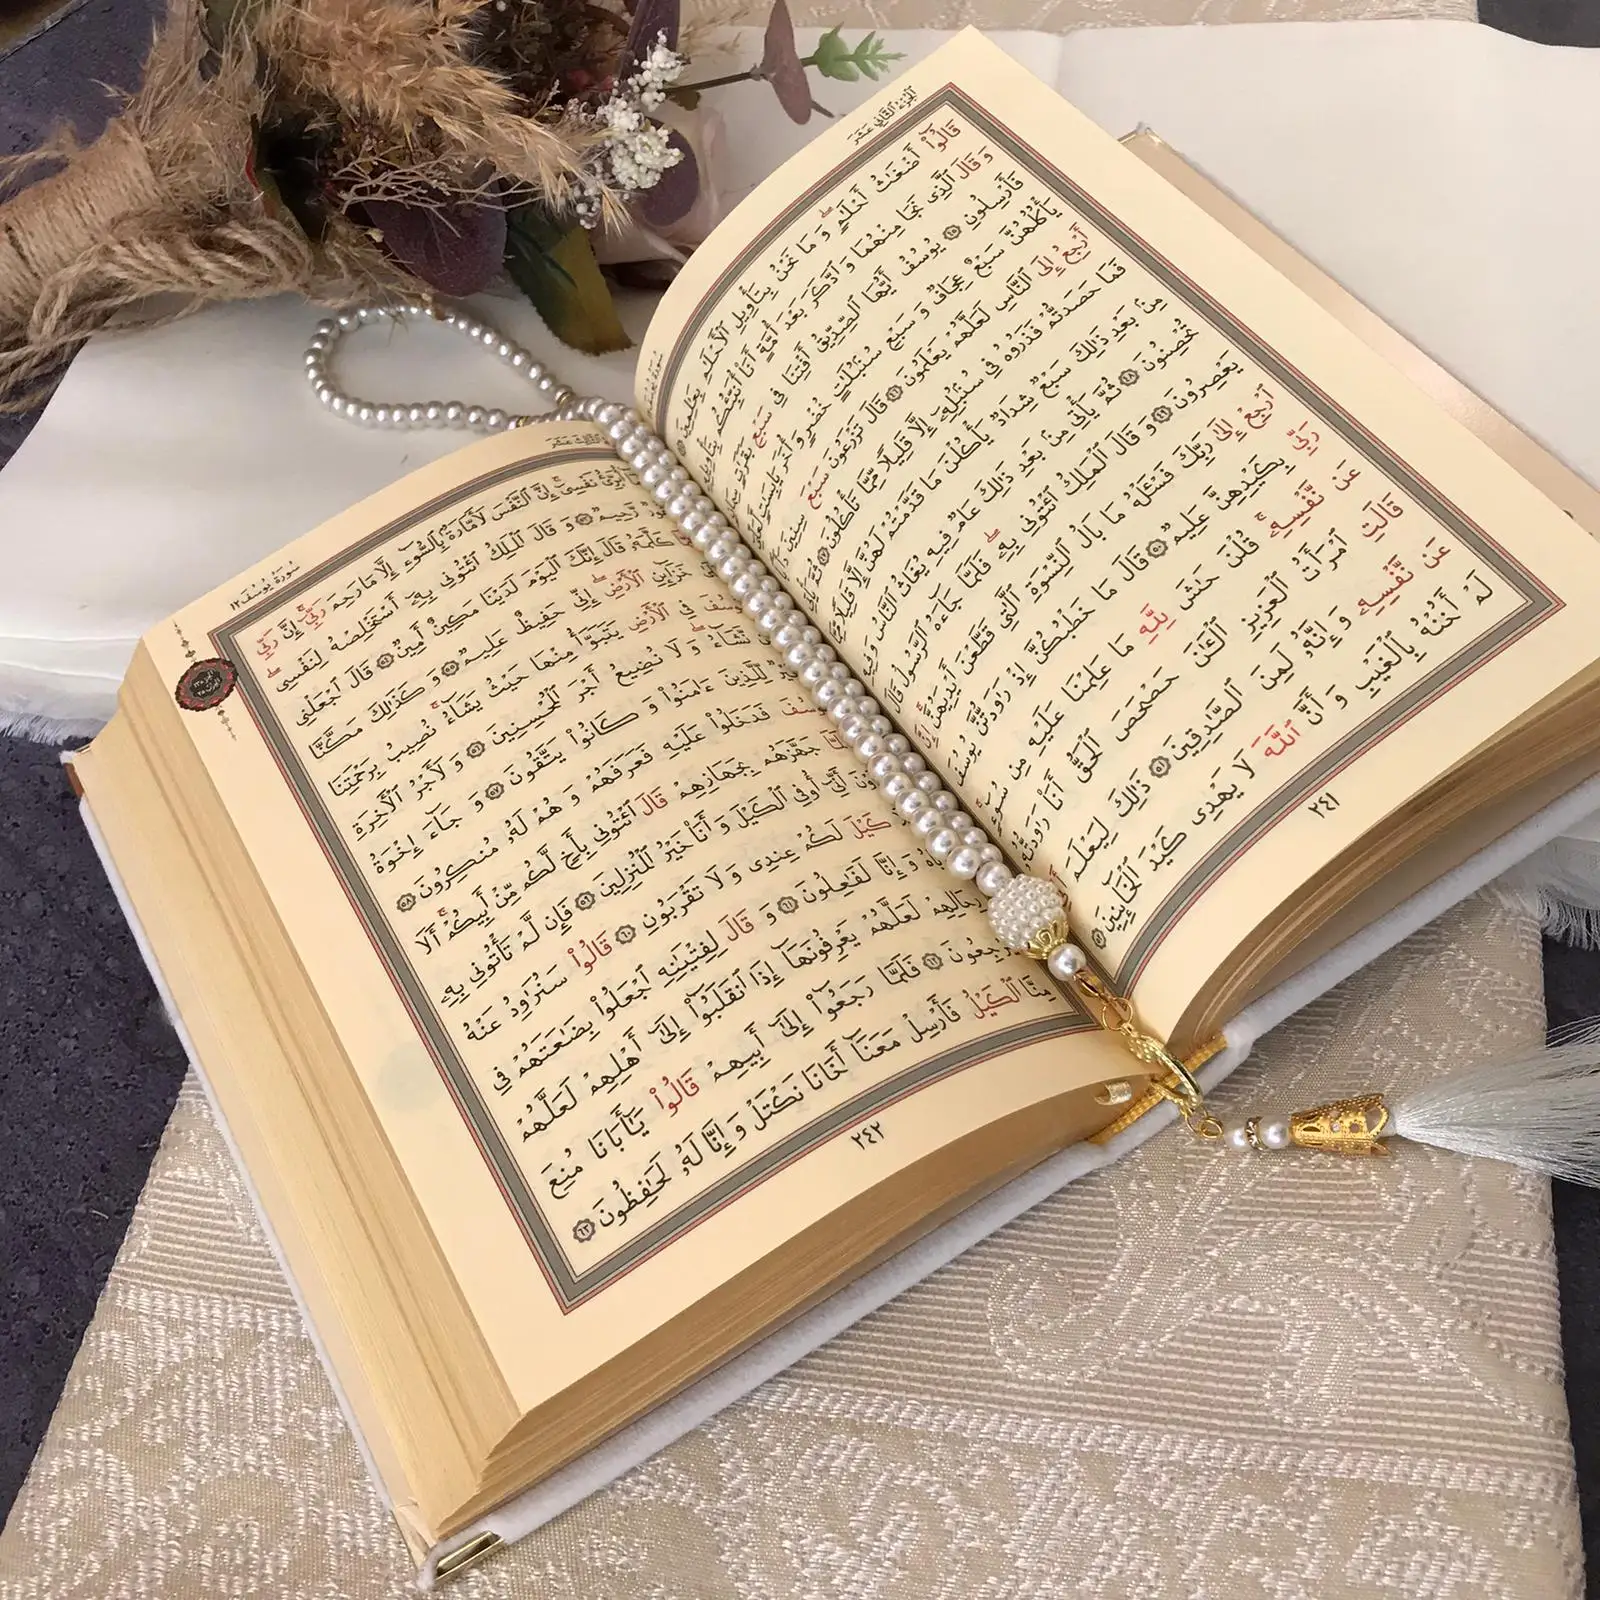 الجزء الثاني عشر
قَالُوٓا۟ أَضْغَٰثُ أَحْلَٰمٍۖ وَمَا نَحْنُ بِتَأْوِيلِ ٱلْأَحْلَٰمِ بِعَٰلِمِينَ ٤٤
وَقَالَ ٱلَّذِى نَجَا مِنْهُمَا وَٱدَّكَرَ بَعْدَ أُمَّةٍ أَنَا۠ أُنَبِّئُكُم بِتَأْوِيلِهِۦ
فَأَرْسِلُونِ ٤٥ يُوسُفُ أَيُّهَا ٱلصِّدِّيقُ أَفْتِنَا فِى سَبْعِ بَقَرَٰتٍ سِمَانٍ
يَأْكُلُهُنَّ سَبْعٌ عِجَافٌ وَسَبْعِ سُنۢبُلَٰتٍ خُضْرٍ وَأُخَرَ يَابِسَٰتٍ لَّعَلِّىٓ
أَرْجِعُ إِلَى ٱلنَّاسِ لَعَلَّهُمْ يَعْلَمُونَ ٤٦ قَالَ تَزْرَعُونَ سَبْعَ سِنِينَ دَأَبًا
فَمَا حَصَدتُّمْ فَذَرُوهُ فِى سُنۢبُلِهِۦٓ إِلَّا قَلِيلًا مِّمَّا تَأْكُلُونَ ٤٧ ثُمَّ يَأْتِى
مِنۢ بَعْدِ ذَٰلِكَ سَبْعٌ شِدَادٌ يَأْكُلْنَ مَا قَدَّمْتُمْ لَهُنَّ إِلَّا قَلِيلًا مِّمَّا
تُحْصِنُونَ ٤٨ ثُمَّ يَأْتِى مِنۢ بَعْدِ ذَٰلِكَ عَامٌ فِيهِ يُغَاثُ ٱلنَّاسُ وَفِيهِ
يَعْصِرُونَ ٤٩ وَقَالَ ٱلْمَلِكُ ٱئْتُونِى بِهِۦۖ فَلَمَّا جَآءَهُ ٱلرَّسُولُ قَالَ
ٱرْجِعْ إِلَىٰ رَبِّكَ فَسْـَٔلْهُ مَا بَالُ ٱلنِّسْوَةِ ٱلَّٰتِى قَطَّعْنَ أَيْدِيَهُنَّۚ إِنَّ
رَبِّى بِكَيْدِهِنَّ عَلِيمٌ ٥٠ قَالَ مَا خَطْبُكُنَّ إِذْ رَٰوَدتُّنَّ يُوسُفَ
عَن نَّفْسِهِۦۚ قُلْنَ حَٰشَ لِلَّهِ مَا عَلِمْنَا عَلَيْهِ مِن سُوٓءٍۚ
قَالَتِ ٱمْرَأَتُ ٱلْعَزِيزِ ٱلْـَٰٔنَ حَصْحَصَ ٱلْحَقُّ أَنَا۠ رَٰوَدتُّهُۥ
عَن نَّفْسِهِۦ وَإِنَّهُۥ لَمِنَ ٱلصَّٰدِقِينَ ٥١ ذَٰلِكَ لِيَعْلَمَ
لَمْ أَخُنْهُ بِٱلْغَيْبِ وَأَنَّ ٱللَّهَ لَا يَهْدِى كَيْدَ ٱلْخَآئِنِينَ ٥٢
٢٤١
سورة يوسف ١٢
أُبَرِّئُ نَفْسِىٓۚ إِنَّ ٱلنَّفْسَ لَأَمَّارَةٌۢ بِٱلسُّوٓءِ إِلَّا مَا رَحِمَ رَبِّىٓۚ إِنَّ رَبِّى
رَّحِيمٌ ٥٣ وَقَالَ ٱلْمَلِكُ ٱئْتُونِى بِهِۦٓ أَسْتَخْلِصْهُ لِنَفْسِىۖ
كَلَّمَهُۥ قَالَ إِنَّكَ ٱلْيَوْمَ لَدَيْنَا مَكِينٌ أَمِينٌ ٥٤ قَالَ ٱجْعَلْنِى
خَزَآئِنِ ٱلْأَرْضِۖ إِنِّى حَفِيظٌ عَلِيمٌ ٥٥ وَكَذَٰلِكَ مَكَّنَّا
فِى ٱلْأَرْضِ يَتَبَوَّأُ مِنْهَا حَيْثُ يَشَآءُۚ نُصِيبُ بِرَحْمَتِنَا
نَّشَآءُۖ وَلَا نُضِيعُ أَجْرَ ٱلْمُحْسِنِينَ ٥٦ وَلَأَجْرُ ٱلْـَٔاخِرَةِ
لِّلَّذِينَ ءَامَنُوا۟ وَكَانُوا۟ يَتَّقُونَ ٥٧ وَجَآءَ إِخْوَةُ
فَدَخَلُوا۟ عَلَيْهِ فَعَرَفَهُمْ وَهُمْ لَهُۥ مُنكِرُونَ ٥٨
جَهَّزَهُم بِجَهَازِهِمْ قَالَ ٱئْتُونِى بِأَخٍ لَّكُم مِّنْ أَبِيكُمْۚ أَلَا
أَنِّىٓ أُوفِى ٱلْكَيْلَ وَأَنَا۠ خَيْرُ ٱلْمُنزِلِينَ ٥٩ فَإِن لَّمْ تَأْتُونِى بِهِۦ
كَيْلَ لَكُمْ عِندِى وَلَا تَقْرَبُونِ ٦٠ قَالُوا۟ سَنُرَٰوِدُ عَنْهُ
وَإِنَّا لَفَٰعِلُونَ ٦١ وَقَالَ لِفِتْيَٰنِهِ ٱجْعَلُوا۟ بِضَٰعَتَهُمْ فِى
رِحَالِهِمْ لَعَلَّهُمْ يَعْرِفُونَهَآ إِذَا ٱنقَلَبُوٓا۟ إِلَىٰٓ أَهْلِهِمْ لَعَلَّهُمْ
يَرْجِعُونَ ٦٢ فَلَمَّا رَجَعُوٓا۟ إِلَىٰٓ أَبِيهِمْ قَالُوا۟ يَٰٓأَبَانَا مُنِعَ
مِنَّا ٱلْكَيْلُ فَأَرْسِلْ مَعَنَآ أَخَانَا نَكْتَلْ وَإِنَّا لَهُۥ لَحَٰفِظُونَ ٦٣
٢٤٢